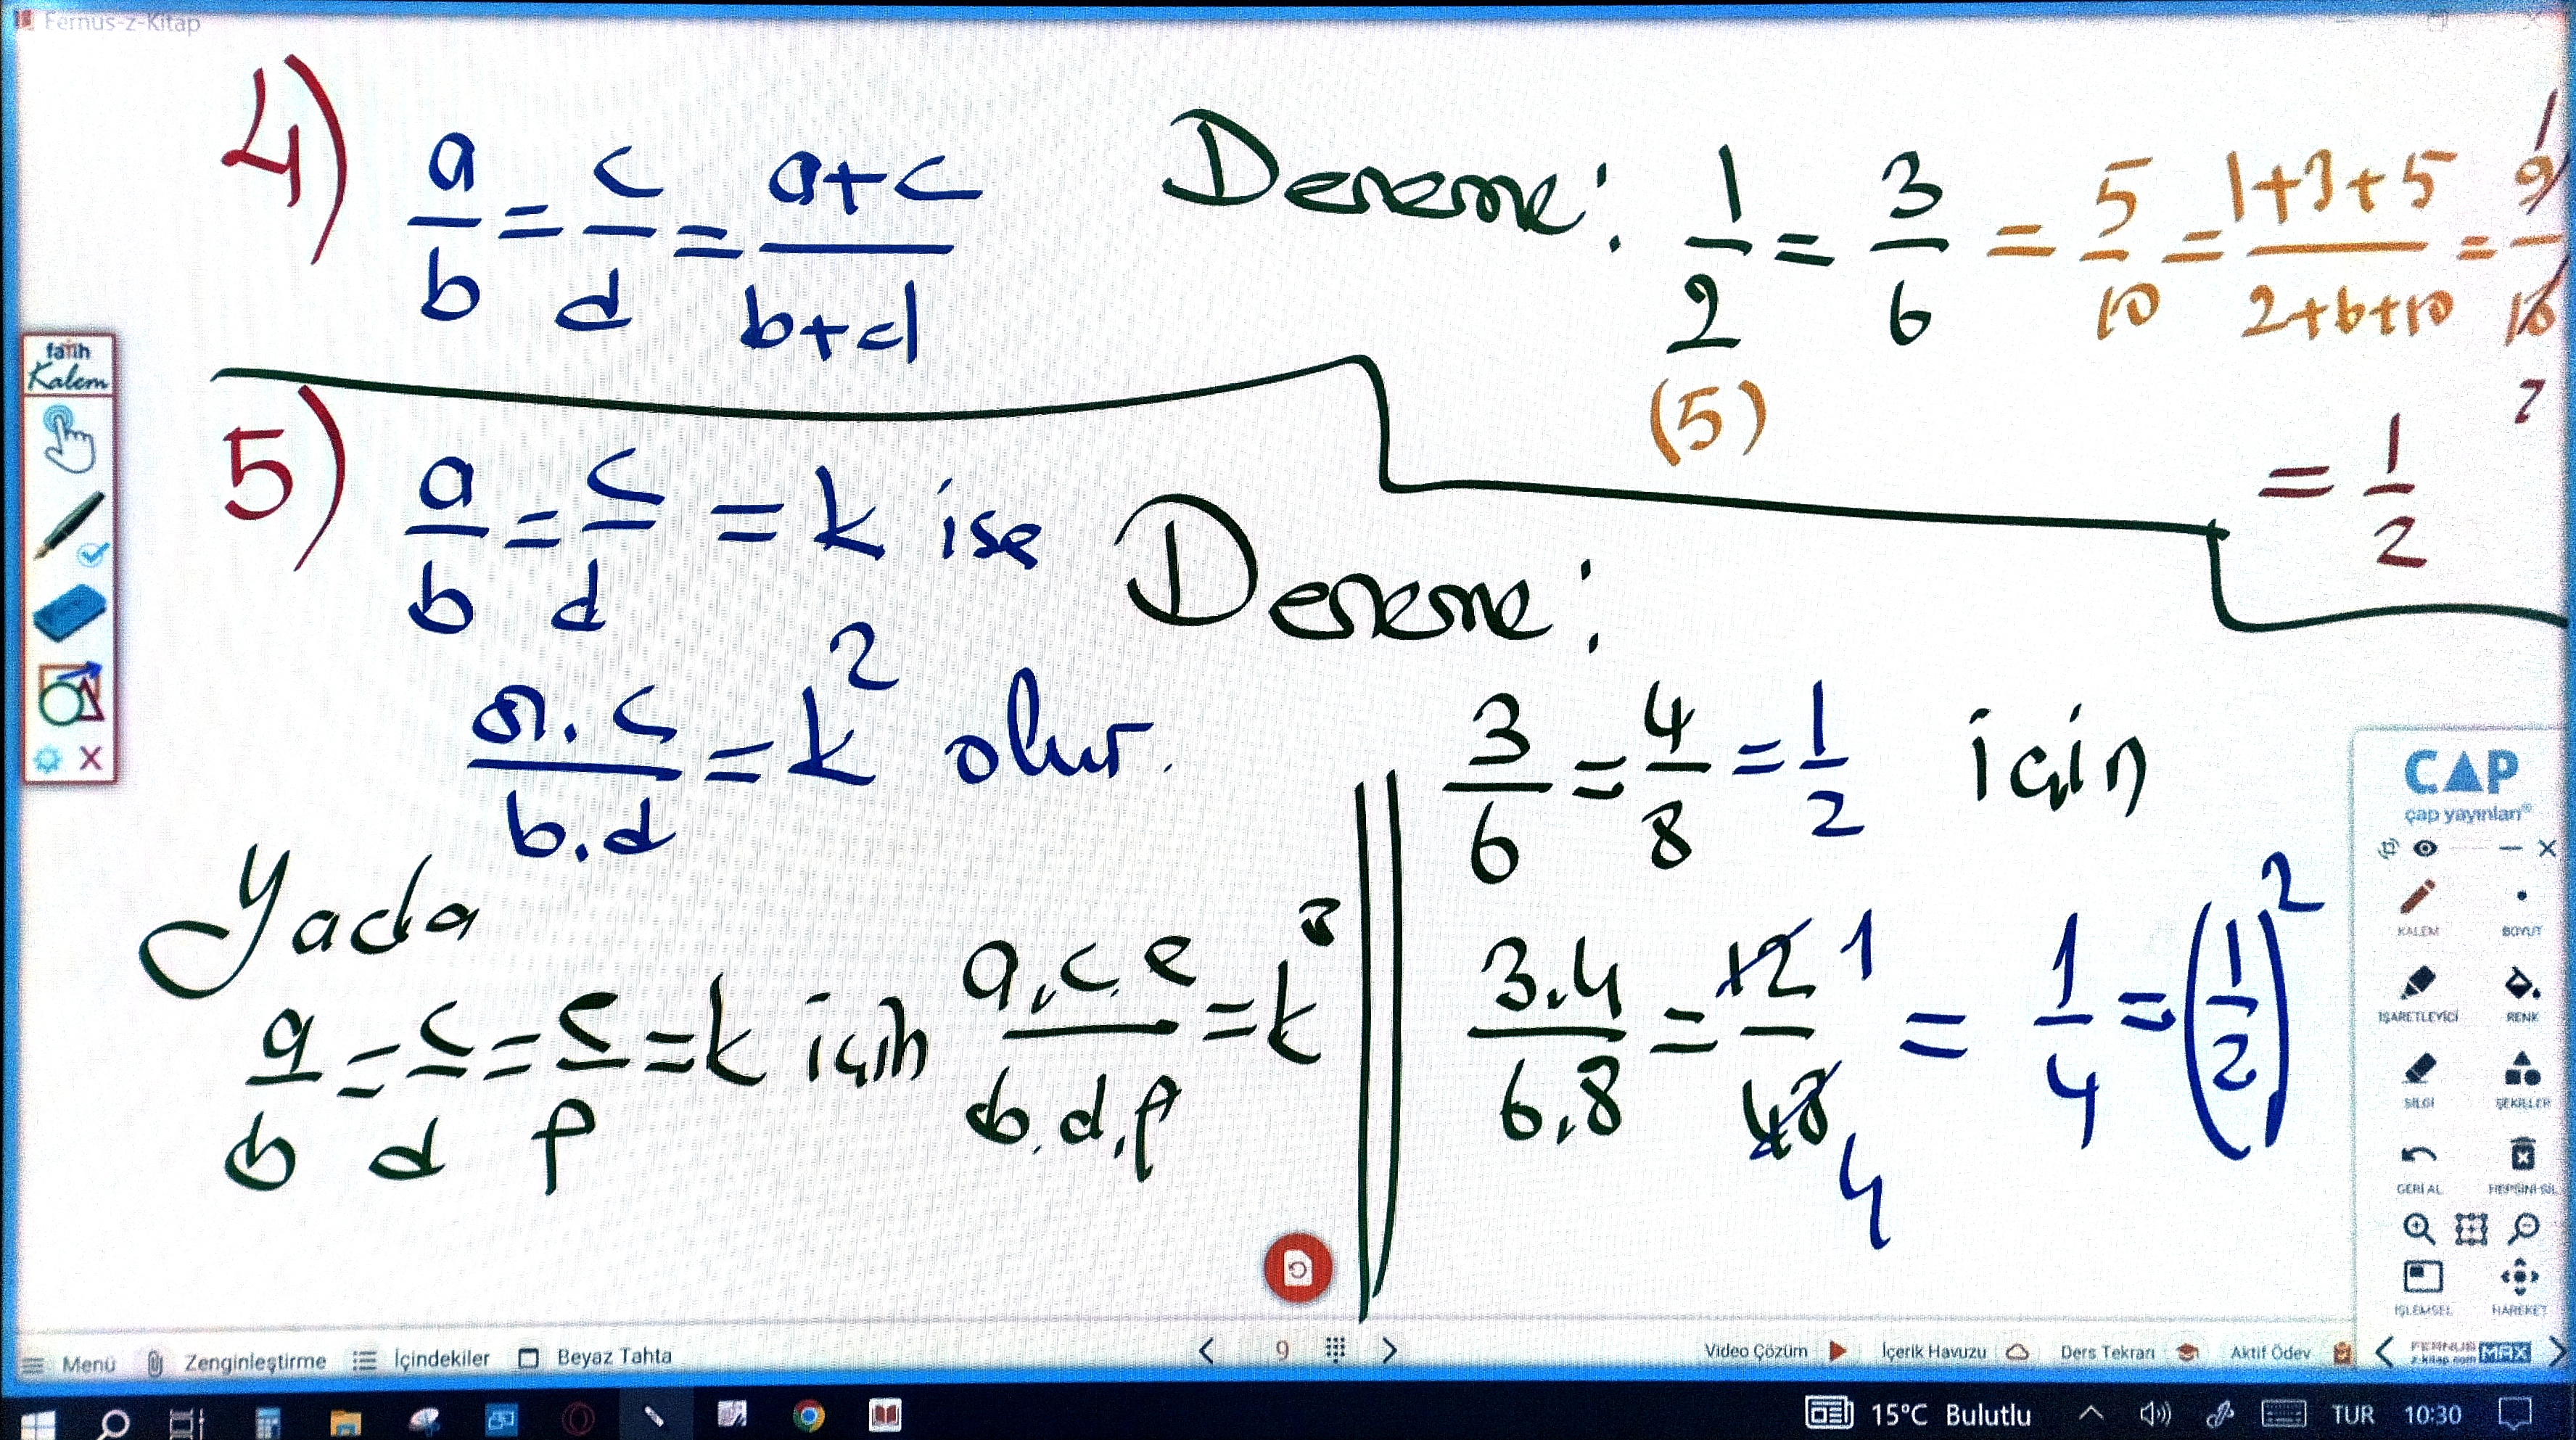 Fernus-z-Kitap
4) a/b = c/d = a+c/b+d
Deneme: 1/2 = 3/6 = 5/10 = 1+3+5/2+6+10 = 9/18 1 2
(5)
= 1/2
5) a/b = c/d = k ise
a.c/b.d = k² olur.
Yada
a/b = c/d = e/f = k için a.c.e/b.d.f = k³
Deneme:
3/6 = 4/8 = 1/2 için
3.4/6.8 = 12/48 1 4 = 1/4 = (1/2)²
fatih
Kalem
ÇAP
çap yayınları®
KALEM BOYUT
İŞARETLEYİCİ RENK
SİLGİ ŞEKİLLER
GERİ AL HEPSİNİ SİL
İŞLEMSEL HAREKET
Menü Zenginleştirme İçindekiler Beyaz Tahta 9 Video Çözüm İçerik Havuzu Ders Tekrarı Aktif Ödev FERNUS z-kitap.com MAX
15°C Bulutlu TUR 10:30